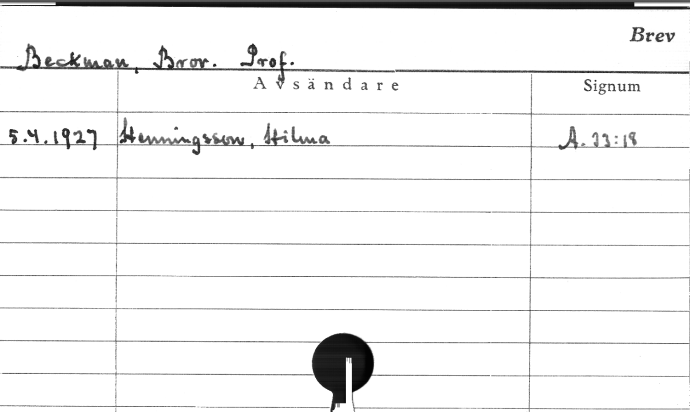 Brev
Beckman, Bror. Prof.
Avsändare Signum
5.4.1927 Henningsson, Hilma A.33:18